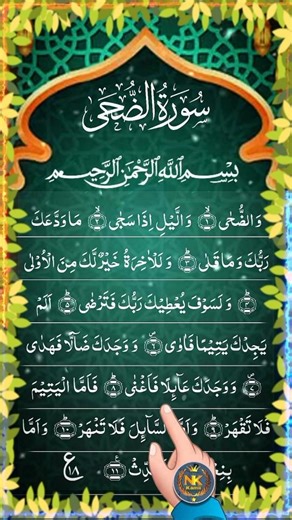 سُورَةُ الضُّحٰى
بِسْمِ اللّٰهِ الرَّحْمٰنِ الرَّحِيْمِ
وَالضُّحٰى ۝۱ وَالَّيْلِ اِذَا سَجٰى ۝۲ مَا وَدَّعَكَ
رَبُّكَ وَمَا قَلٰى ۝۳ وَلَلْاٰخِرَةُ خَيْرٌ لَّكَ مِنَ الْاُوْلٰى
۝۴ وَلَسَوْفَ يُعْطِيْكَ رَبُّكَ فَتَرْضٰى ۝۵ اَلَمْ
يَجِدْكَ يَتِيْمًا فَاٰوٰى ۝۶ وَوَجَدَكَ ضَآلًّا فَهَدٰى
۝۷ وَوَجَدَكَ عَآئِلًا فَاَغْنٰى ۝۸ فَاَمَّا الْيَتِيْمَ
فَلَا تَقْهَرْ ۝۹ وَاَمَّا السَّآئِلَ فَلَا تَنْهَرْ ۝۱۰ وَاَمَّا
۝۱۱ ع ۱۸
NK